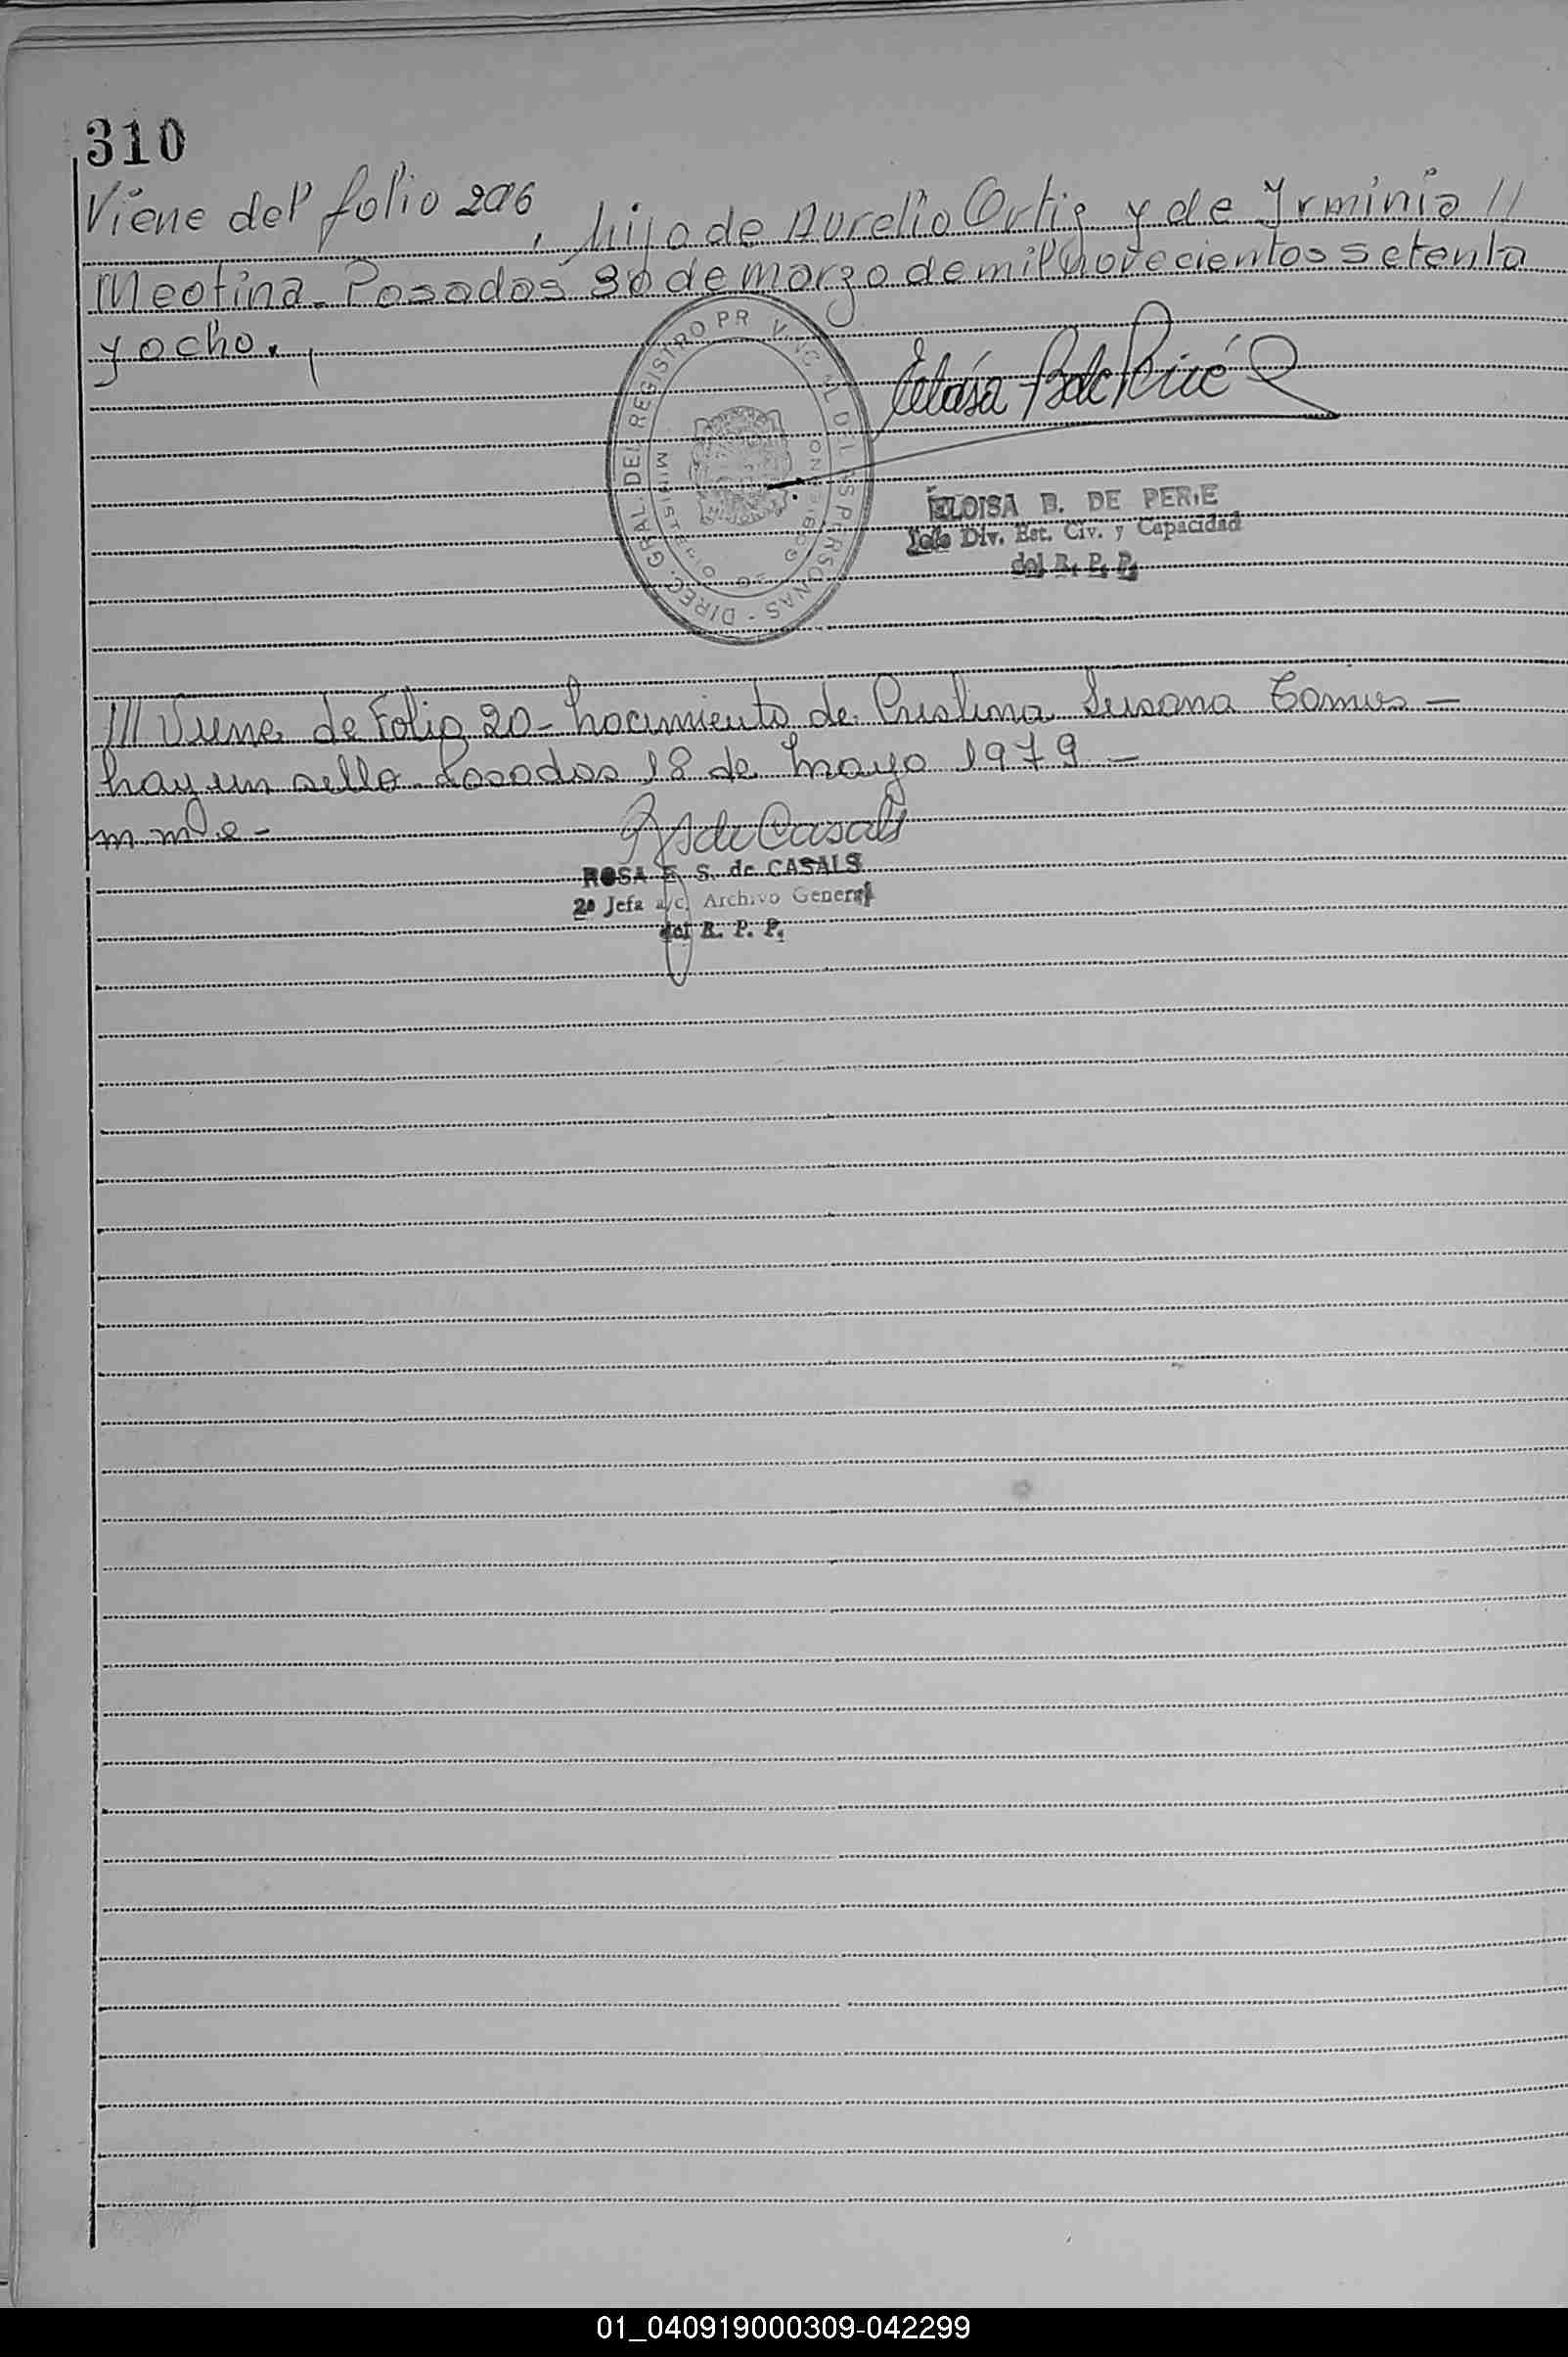 310
Viene del folio 206, hijo de Aurelio Ortiz y de Yrminia //
Meotina. Posadas 30 de marzo de mil novecientos setenta
y ocho.
DIREC. GRAL. DEL REGISTRO PROVINCIAL DE LAS PERSONAS
MINISTERIO DE GOBIERNO
ELOISA B. DE PERIE
Jefe Div. Est. Civ. y Capacidad
del R. P. P.
/// Viene de Folio 20 - nacimiento de Cristina Susana
hay un sello. Posadas 18 de mayo 1979 -
ROSA E. S. de CASALS
2ª Jefa a/c. Archivo General
del R. P. P.
01_040919000309-042299